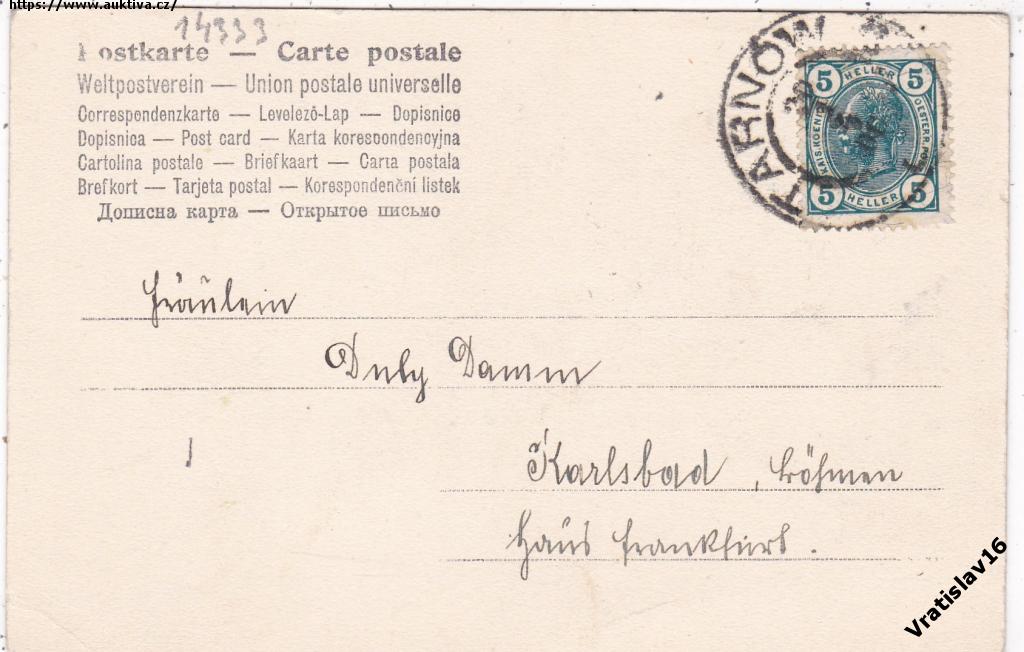 https://www.auktiva.cz/
14333
Postkarte — Carte postale
Weltpostverein — Union postale universelle
Correspondenzkarte — Levelező-Lap — Dopisnice
Dopisnica — Post card — Karta korespondencyjna
Cartolina postale — Briefkaart — Carta postala
Brefkort — Tarjeta postal — Korespondenční lístek
Дописна карта — Открытое письмо
TARNÓW
5 HELLER 5
KAIS. KOENIGL. OESTERR. POST
5 HELLER 5
Fräulein
Duly Damm
Karlsbad, Böhmen
Haus Frankfurt.
Vratislav16